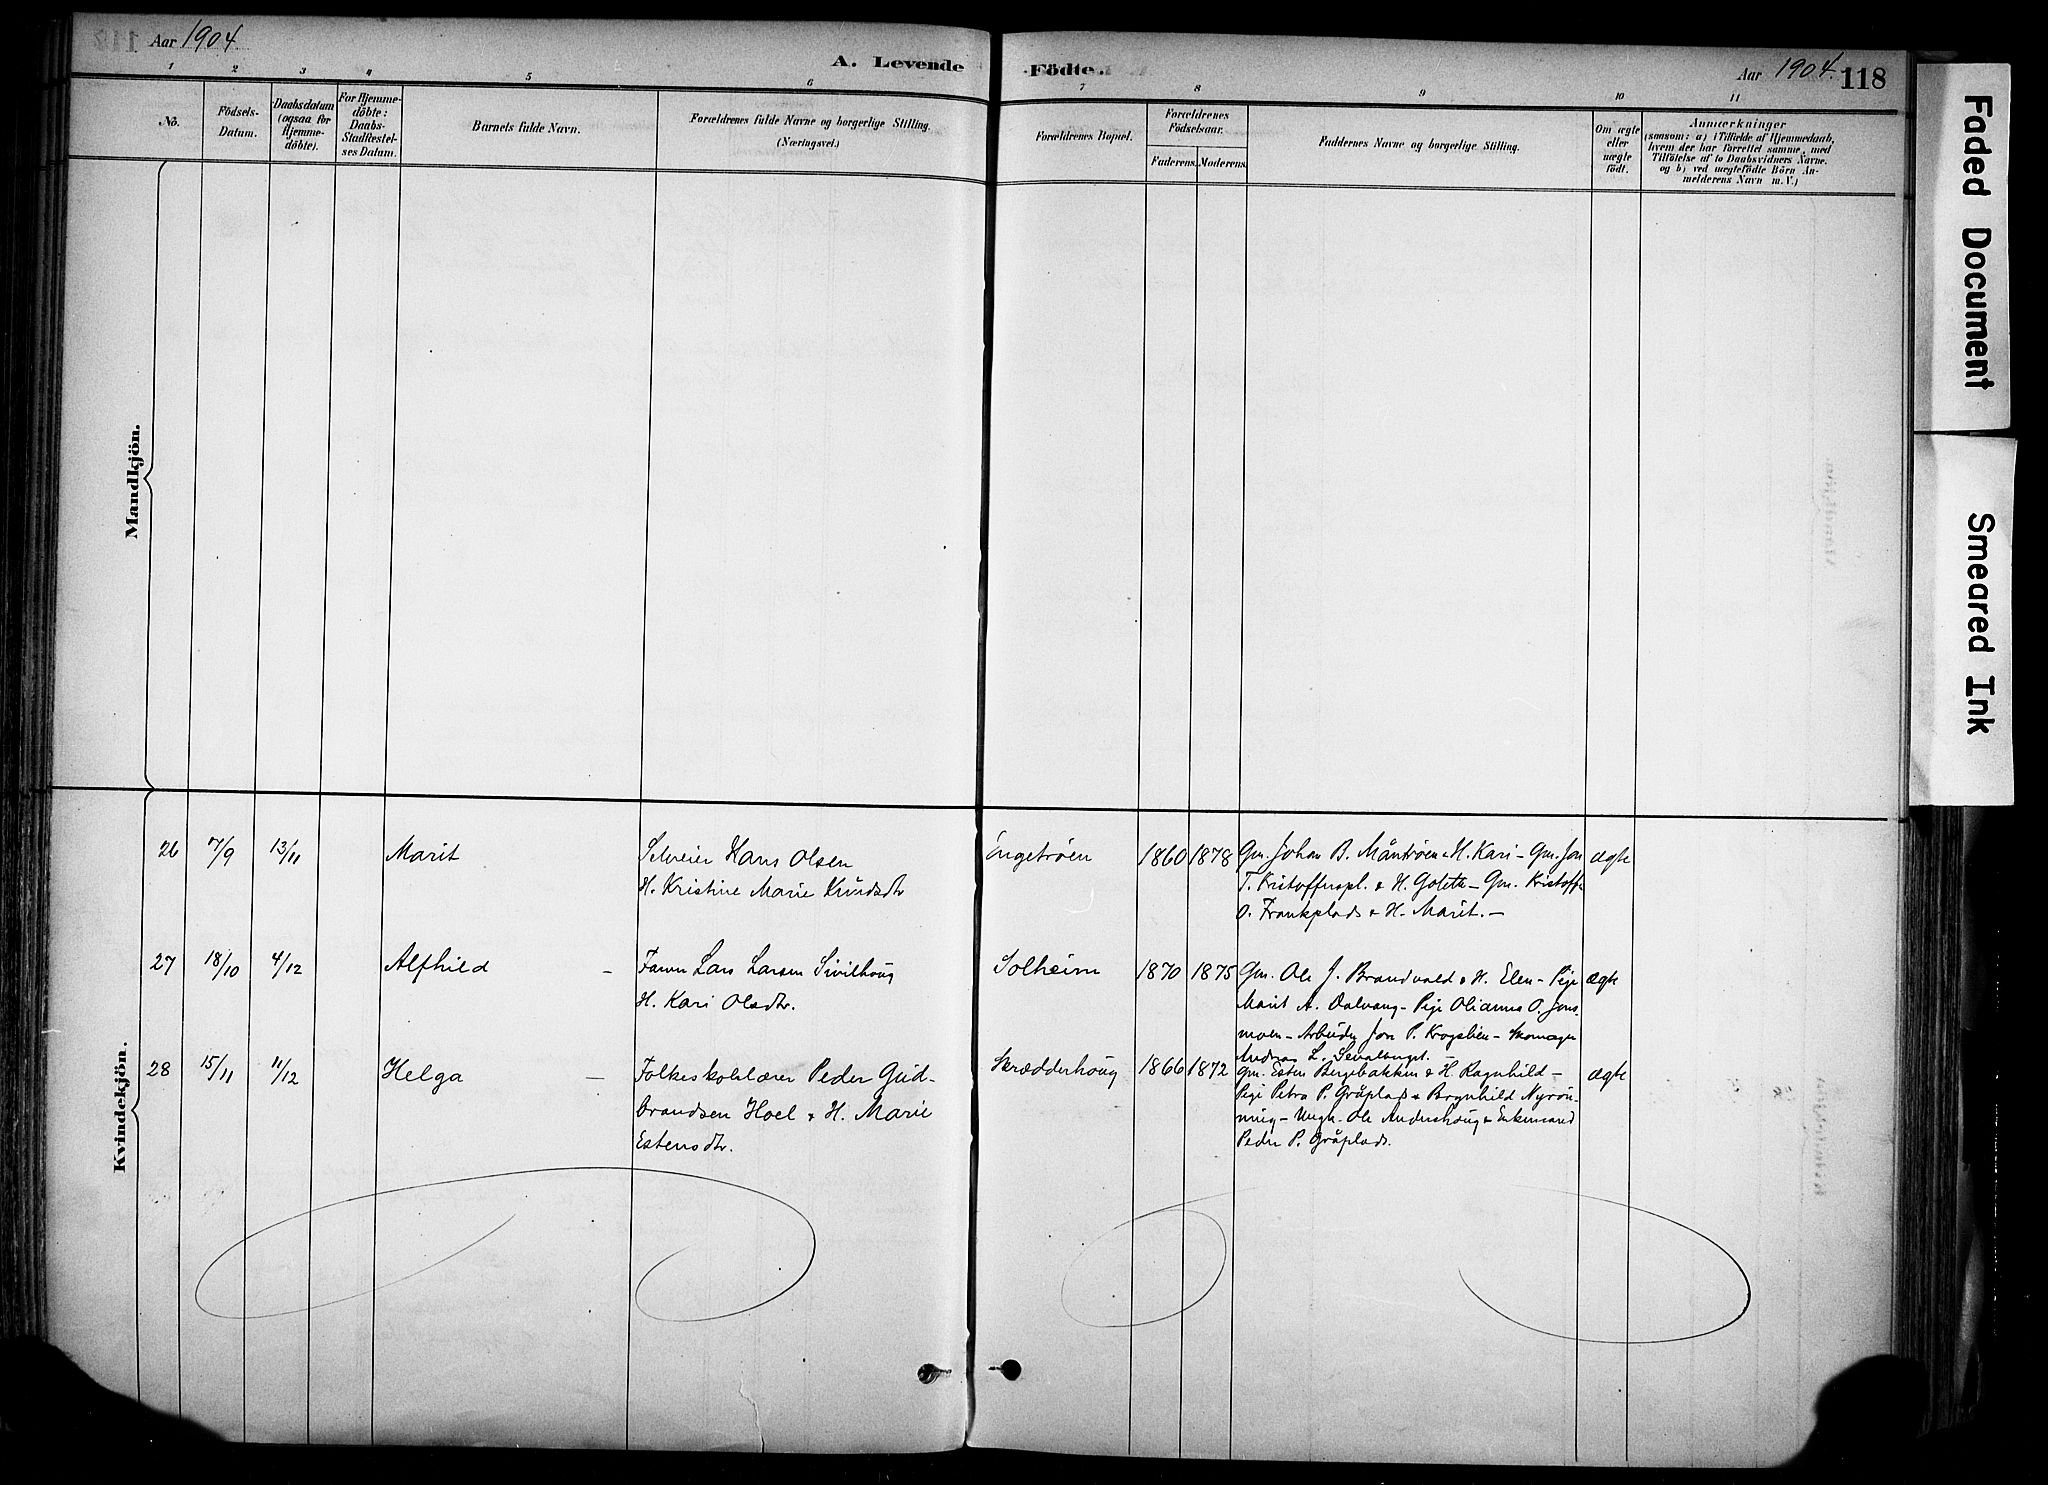 Aar 1904.
A. Levende Födte.
Aar 1904.
118
1 2 3 4 5 6 7 8 9 10 11
No.
Födsels-
Datum.
Daabsdatum
(ogsaa for
Hjemme-
döbte).
For Hjemme-
döbte:
Daabs-
Stadfæstel-
ses Datum.
Barnets fulde Navn.
Forældrenes fulde Navne og borgerlige Stilling.
(Næringsvei.)
Forældrenes Bopæl.
Forældrenes
Födselsaar.
Faderens. Moderens.
Faddernes Navne og borgerlige Stilling.
Om ægte
eller
uægte
födt.
Anmærkninger
(saasom: a) i Tilfælde af Hjemmedaab,
hvem der har forrettet samme, med
Tilföielse af to Daabsvidners Navne.
og b) ved uægtefödte Börn An-
melderens Navn m. V.)
Mandkjön.
Kvindekjön.
26 7/9 13/11 Marit
Selveier Hans Olsen
H. Kristine Marie Knudsdtr
Engetrøen 1860 1878
Gm. Johan B. Måntrøen & H. Kari - Gm. Jon
T. Kristofferspl. & H. Goleth - Gm. Kristoff.
O. Frankplads & H. Marit. -
ægte
27 18/10 4/12 Alfhild -
Farver Lars Larsen Sivilhoug
H. Kari Olsdtr.
Solheim 1870 1875
Gm. Ole J. Brandvold & H. Elen - Pige
Marit A. Dalvang - Pige Olianna O. Jons-
moen - Arbeider Jon P. Krogslien - Skomager
Andreas L.
ægte
28 15/11 11/12 Helga -
Folkeskolelærer Peder Gud-
brandsen Hoel & H. Marie
Estensdtr.
Skrædderhoug 1866 1872
Gm. Esten Bergebakken & H. Ragnhild -
Pige Petra P. Gråplads & Brynhild Nyrøn-
ning - Ungk. Ole Andershoug & Enkemand
Peder P. Gråplads.
ægte
Faded Document
Smeared Ink